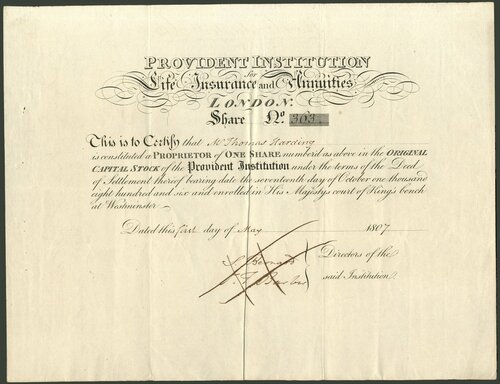 PROVIDENT INSTITUTION
for
Life Insurance and Annuities
LONDON.
Share No. 303.
This is to Certify that Mr Thomas Harding
is constituted a PROPRIETOR of ONE SHARE number'd as above in the ORIGINAL
CAPITAL STOCK of the Provident Institution under the terms of the Deed
of Settlement thereof bearing date the seventeenth day of October one thousand
eight hundred and six and enrolled in His Majesty's court of King's bench
at Westminster.
Dated this first day of May 1807
Directors of the
said Institution.